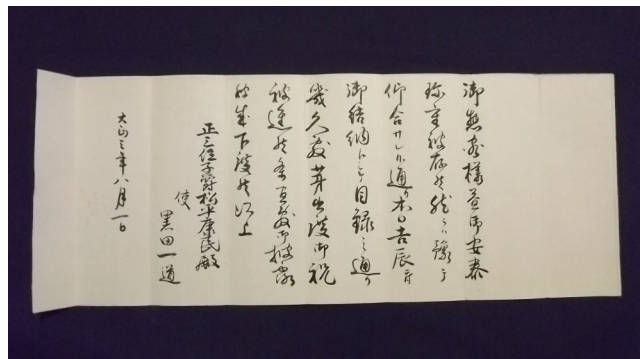 御惣容様益御安泰
珍重被存候然ハ豫テ
仰合サレ候通リ本日吉辰ニ付
御結納トシテ目録之通リ
幾久敷芽出度御祝
被進候条直敷御披露
被成下度候以上
正三位子爵松平康民殿
使
黒田一道
大正三年八月一日